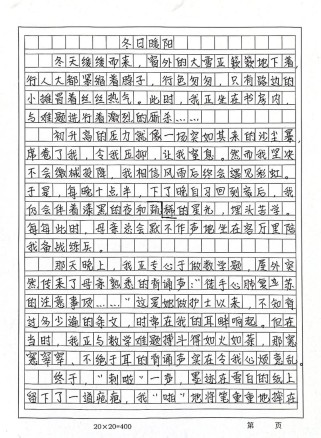 冬日暖阳
冬天缓缓而来，窗外的大雪正簌簌地下着，
行人大都紧缩着脖子，行色匆匆，只有路边的
小摊冒着丝丝热气。此时，我正坐在书房内，
与难题进行着激烈的厮杀……
初升高的压力就像一场突如其来的沙尘暴，
席卷了我，令我压抑，让我窒息。然而我坚决
不会缴械投降，我相信风雨后终会遇见彩虹。
于是，每晚十点半，下了晚自习回到家后，我
仍会伴着漆黑的夜和稀疏的星光，埋头苦学。
每每此时，母亲总会默不作声地坐在客厅里陪
我备战练兵。
那天晚上，我正专心于做数学题，屋外突
然传来了母亲熟悉的背诵声：“徒手心肺复苏
的注意事项……”这是她做护士以来，不知背
过多少遍的条文，时常在我的耳畔响起。但在
当时，我正与数学难题搏斗得如火如荼，那窸
窸窣窣、不绝于耳的背诵声实在令我心烦意乱。
终于，“刺啦”一声，墨迹在雪白的纸上
留下了一道疤痕，我“啪”地将笔重重地摔在
20×20=400 第 页